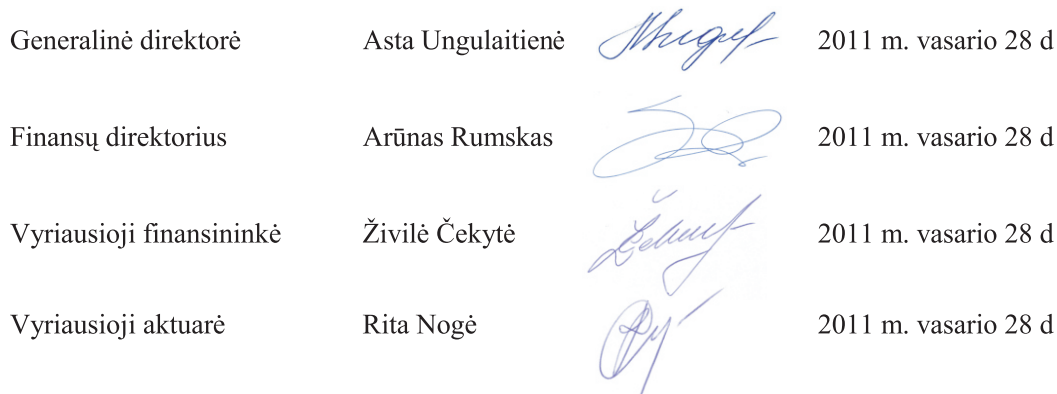 Generalinė direktorė Asta Ungulaitienė 2011 m. vasario 28 d
Finansų direktorius Arūnas Rumskas 2011 m. vasario 28 d
Vyriausioji finansininkė Živilė Čekytė 2011 m. vasario 28 d
Vyriausioji aktuarė Rita Nogė 2011 m. vasario 28 d